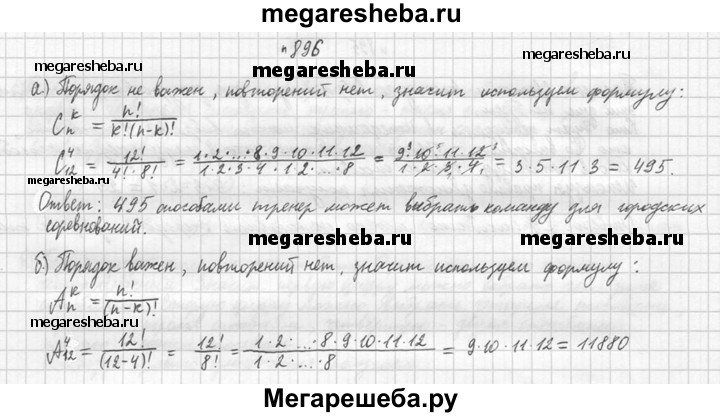 megaresheba.ru
№896
megaresheba.ru
megaresheba.ru
а) Порядок не важен, повторений нет, значит используем формулу:
C_n^k = n!/(k!(n-k)!)
megaresheba.ru
C_12^4 = 12!/(4!·8!) = (1·2·...·8·9·10·11·12)/(1·2·3·4·1·2·...·8) = (9³·10⁵·11·12³)/(1·2·3·4) = 3·5·11·3 = 495.
megaresheba.ru
Ответ: 495 способами тренер может выбрать команду для городских
соревнований.
megaresheba.ru
megaresheba.ru
б) Порядок важен, повторений нет, значит используем формулу:
A_n^k = n!/(n-k)!
megaresheba.ru
A_12^4 = 12!/(12-4)! = 12!/8! = (1·2·...·8·9·10·11·12)/(1·2·...·8) = 9·10·11·12 = 11880
Мегарешеба.ру